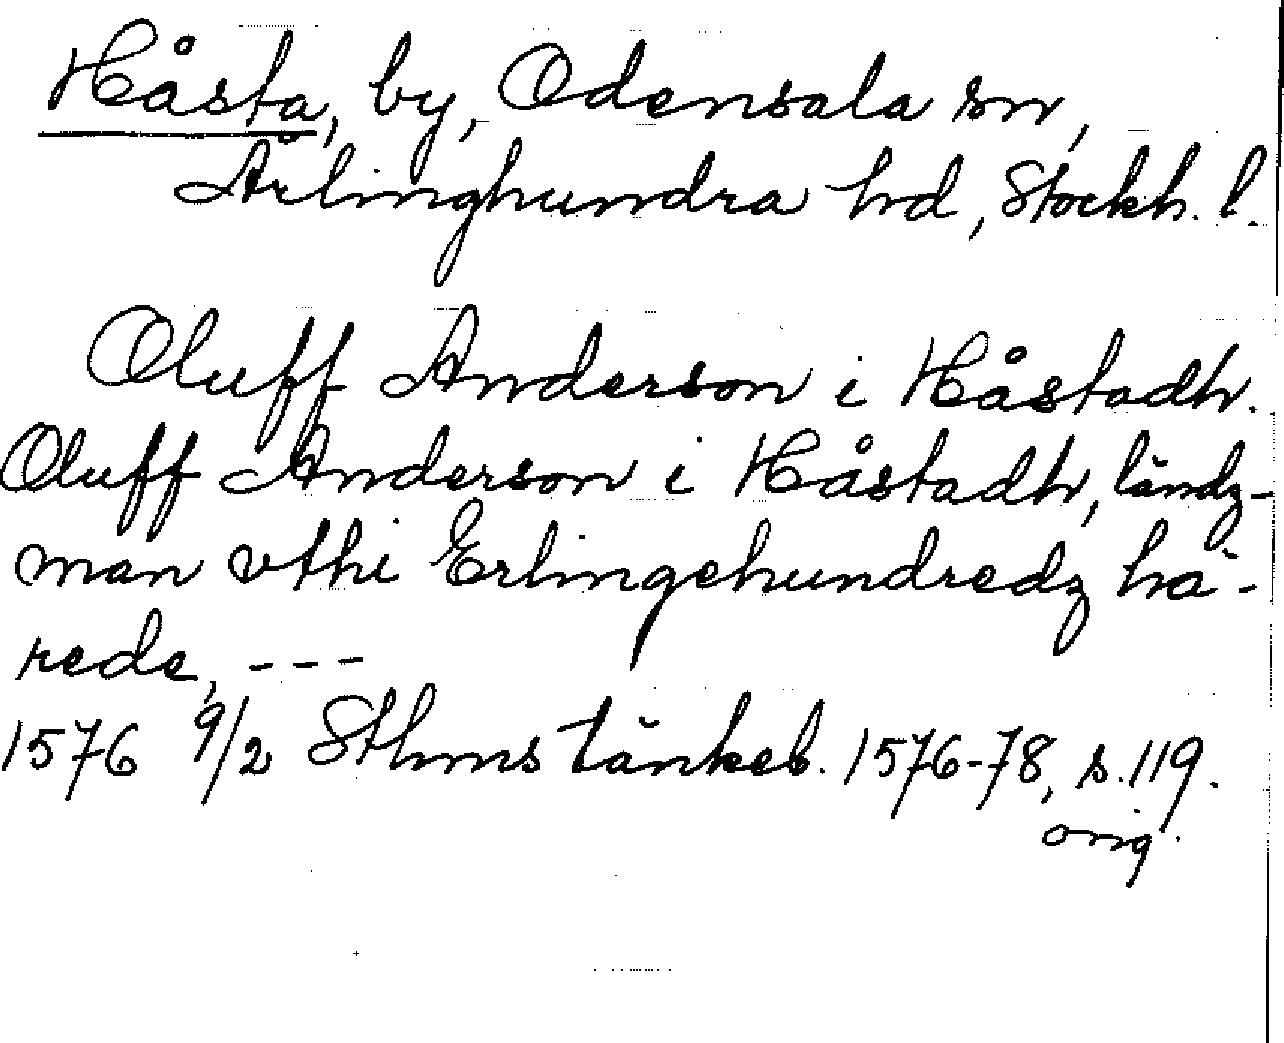 Håsta, by, Odensala sn,
Ärlinghundra hd, Stockh. l.
Oluff Anderson i Håstadh.
Oluff Anderson i Håstadh, ländz-
man vthi Erlingehundredz hä-
rede, ---
1576 9/2 Sthms tänkeb. 1576-78, s. 119.
orig.